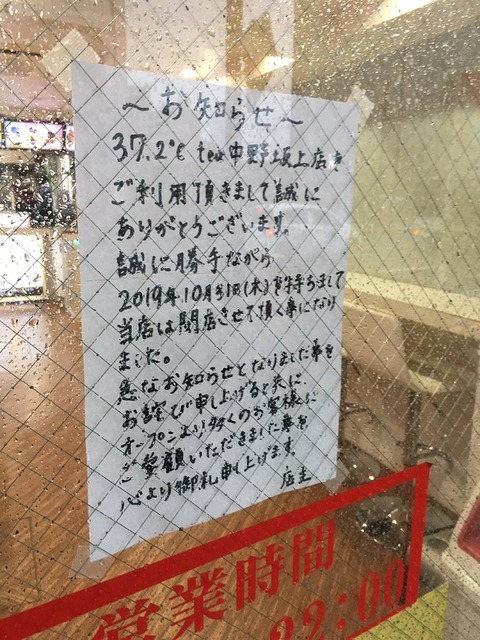 ～お知らせ～
37.2℃ tea中野坂上店を
ご利用頂きまして誠に
ありがとうございます。
誠に勝手ながら
2019年10月31日(木)をもちまして
当店は閉店させて頂く事になり
ました。
急なお知らせとなりました事を
お詫び申し上げると共に、
オープンより多くのお客様に
ご愛顧いただきました事を
心より御礼申し上げます。
店主
営業時間
22:00